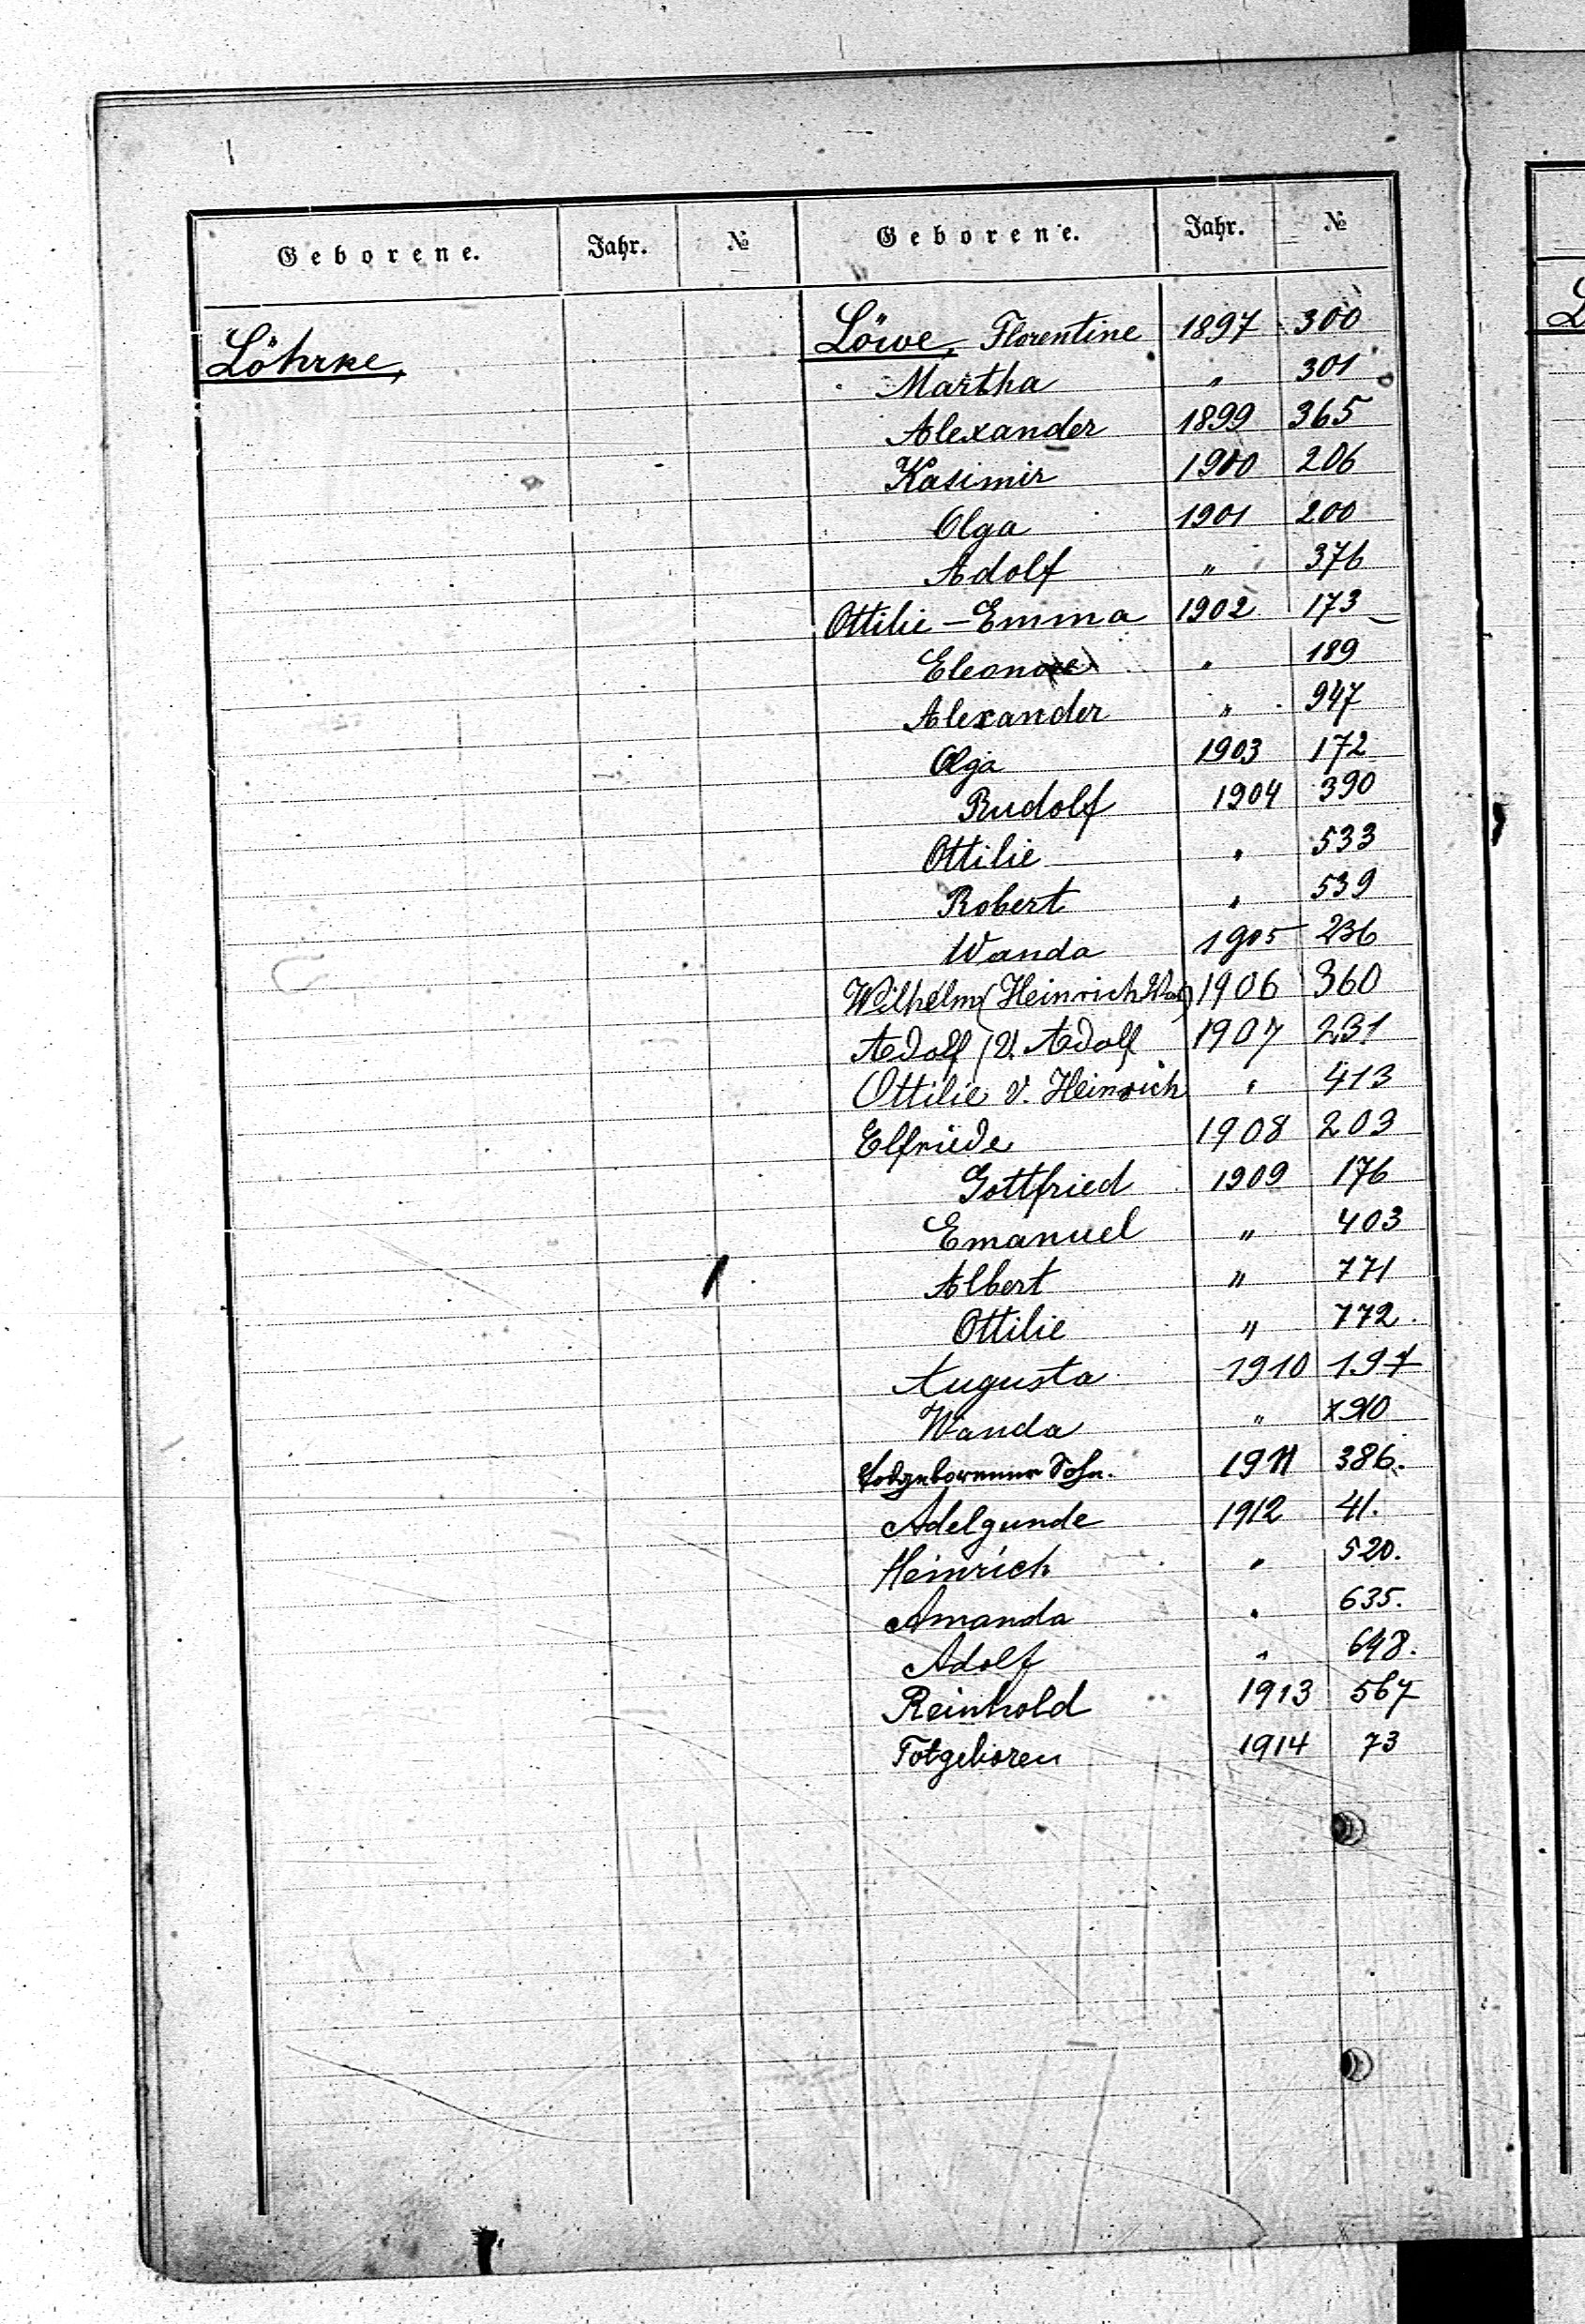 Geborene. Jahr. № Geborene. Jahr. №
Löhrke,
Löwe, Florentine 1897 300
Martha " 301
Alexander 1899 365
Kasimir 1900 206
Olga 1901 200
Adolf " 376
Ottilie-Emma 1902 173
" 189
Alexander " 947
Olga 1903 172
Rudolf 1904 390
Ottilie " 533
Robert " 539
Wanda 1905 236
Wilhelm (Heinrich 1906 360
Adolf (V. Adolf) 1907 231
Ottilie V. Heinrich " 413
Elfriede 1908 203
Gottfried 1909 176
Emanuel " 403
Albert " 771
Ottilie " 772.
Augusta 1910 197
Wanda "
Todgeborener Sohn. 1911 386.
Adelgunde 1912 41.
Heinrich " 520.
Amanda " 635.
Adolf " 648.
Reinhold 1913 567
Totgeboren 1914 73